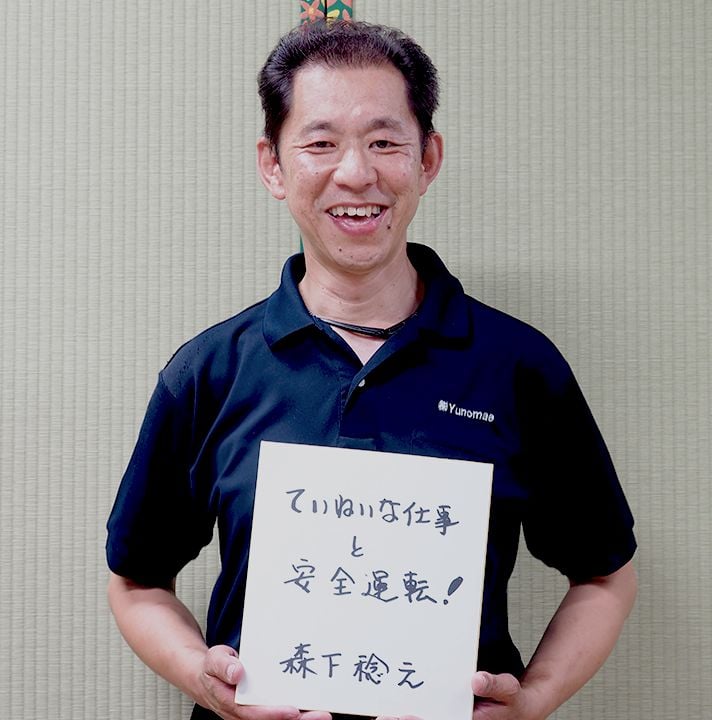 ㈱Yunomae
ていねいな仕事
と
安全運転!
森下稔え